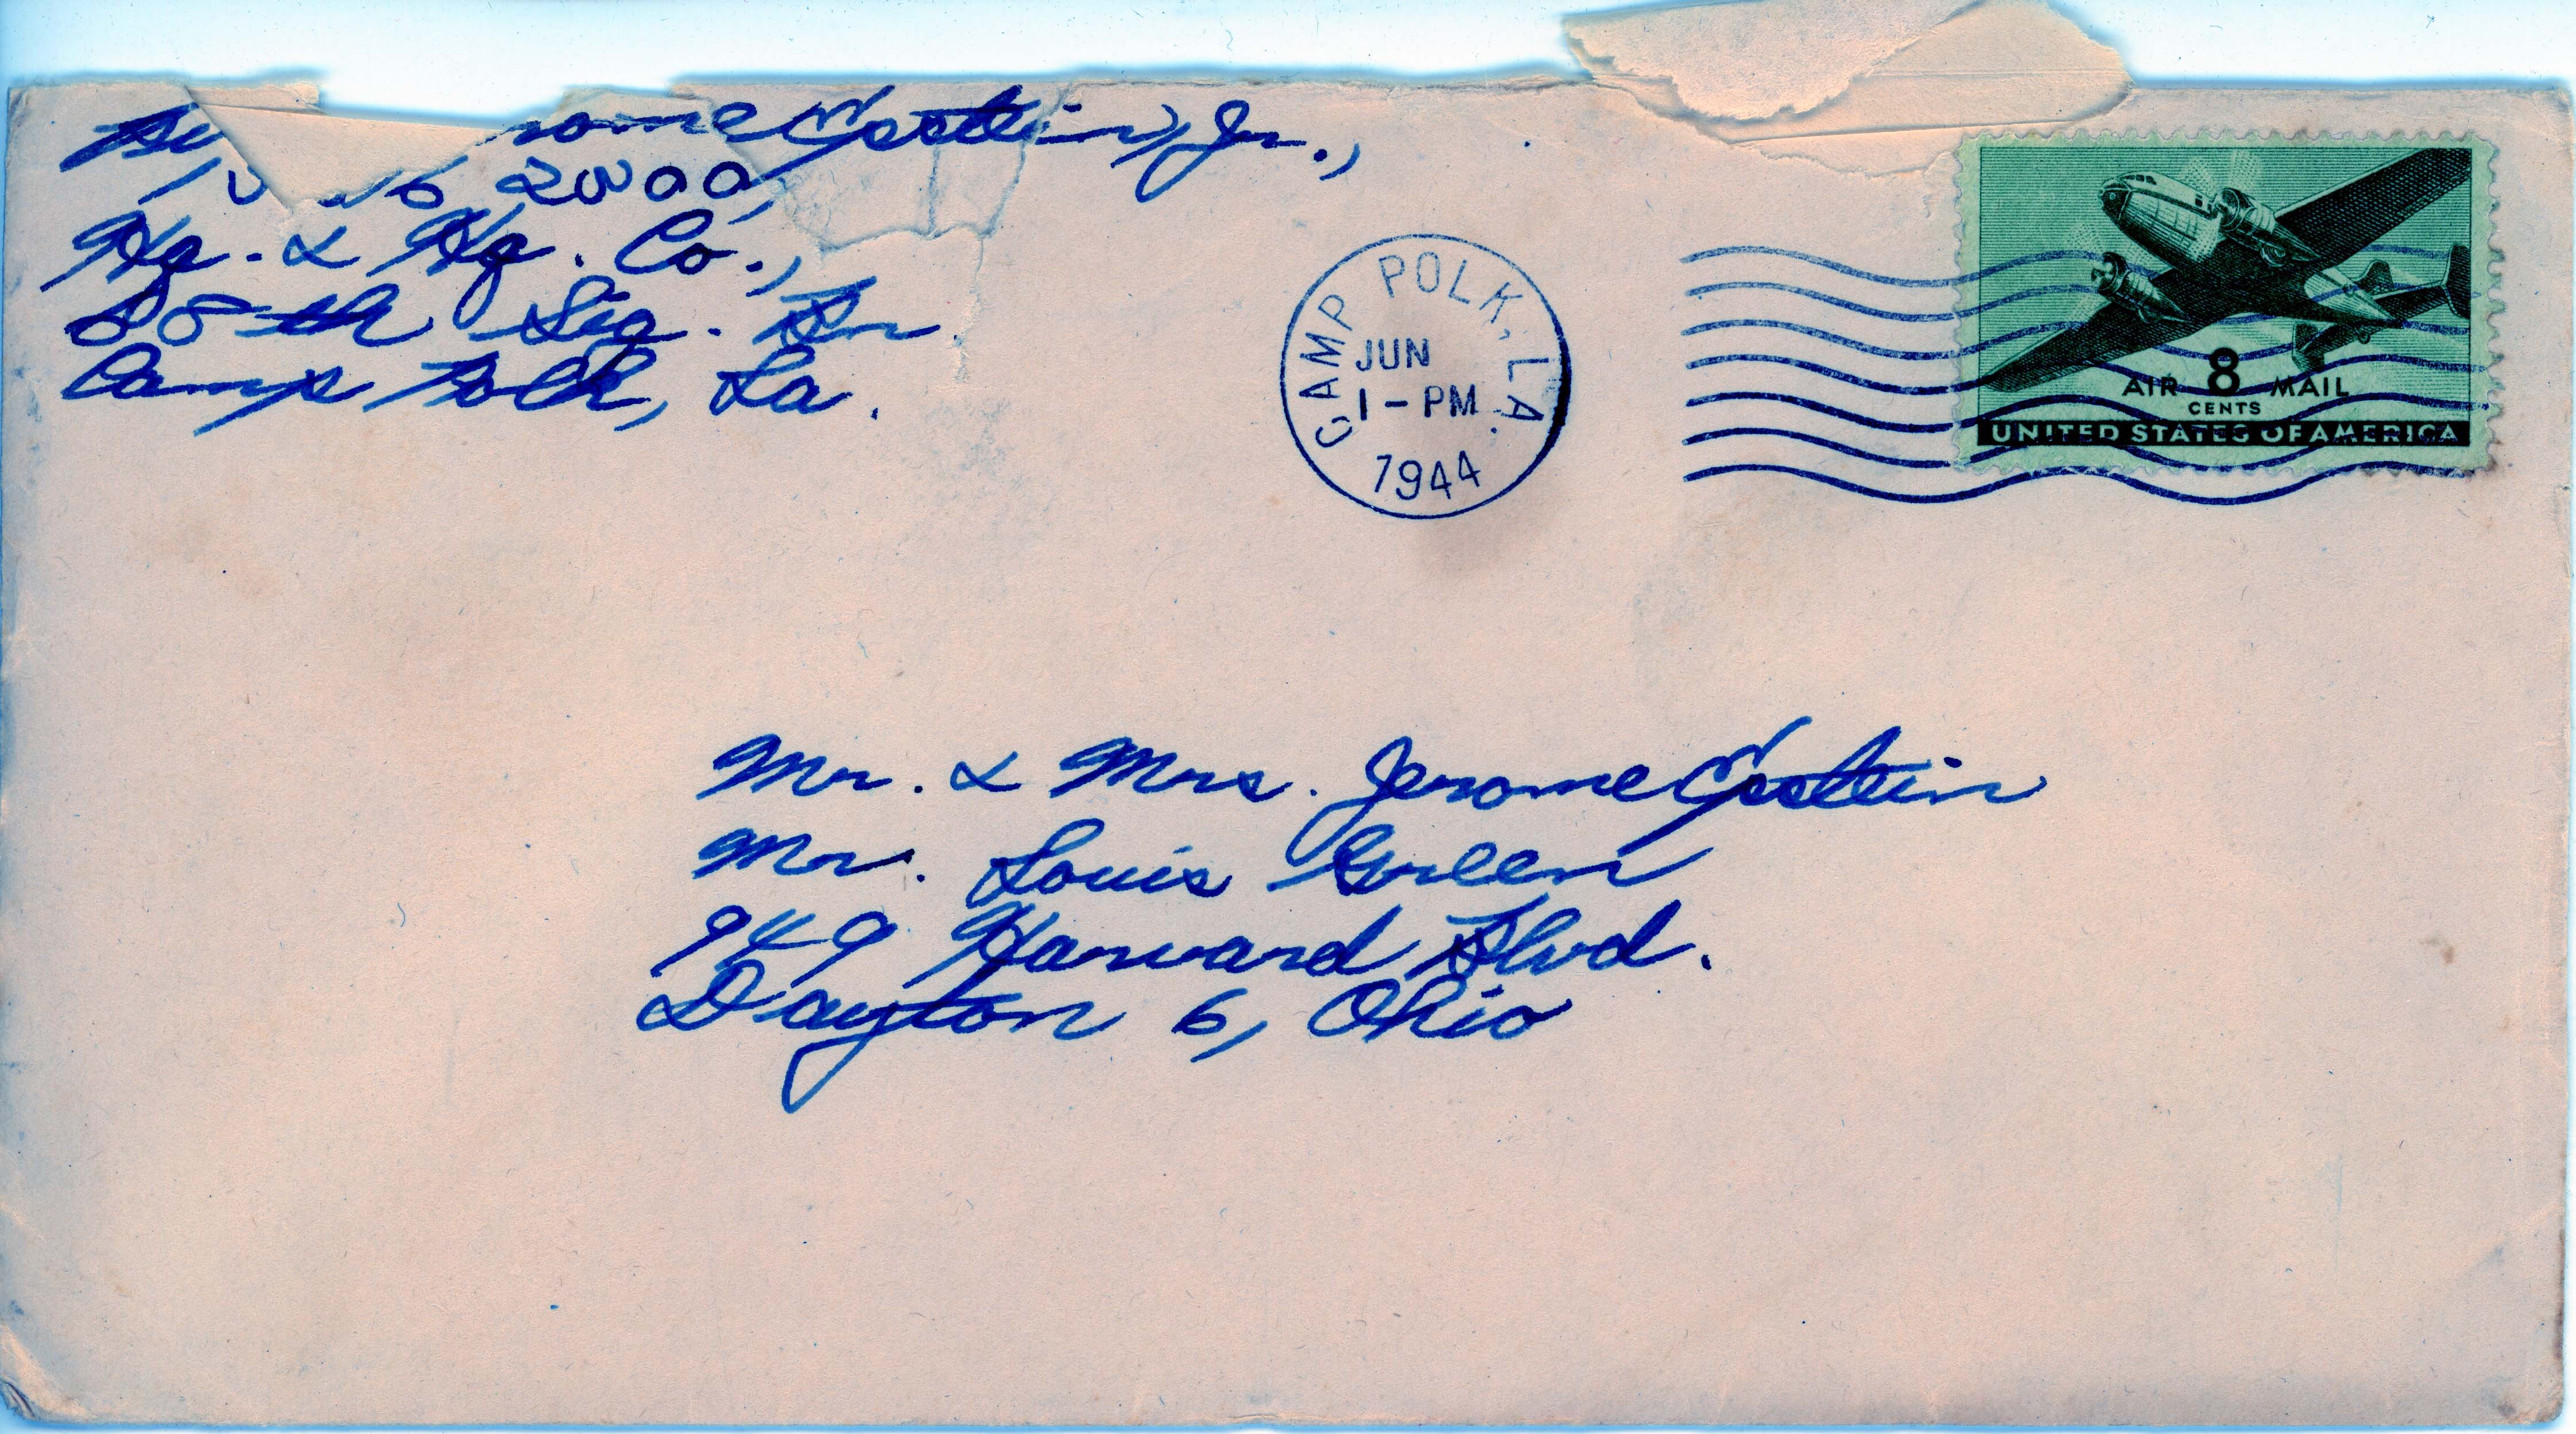 Jerome Epstein, Jr.,
Hq. & Hq. Co.,
88th Sig. Bn.
Camp Polk, La.
CAMP POLK, LA.
JUN
1-PM
1944
AIR 8 MAIL
CENTS
UNITED STATES OF AMERICA
Mr. & Mrs. Jerome Epstein
Mr. Louis Green
949 Harvard Blvd.
Dayton 6, Ohio